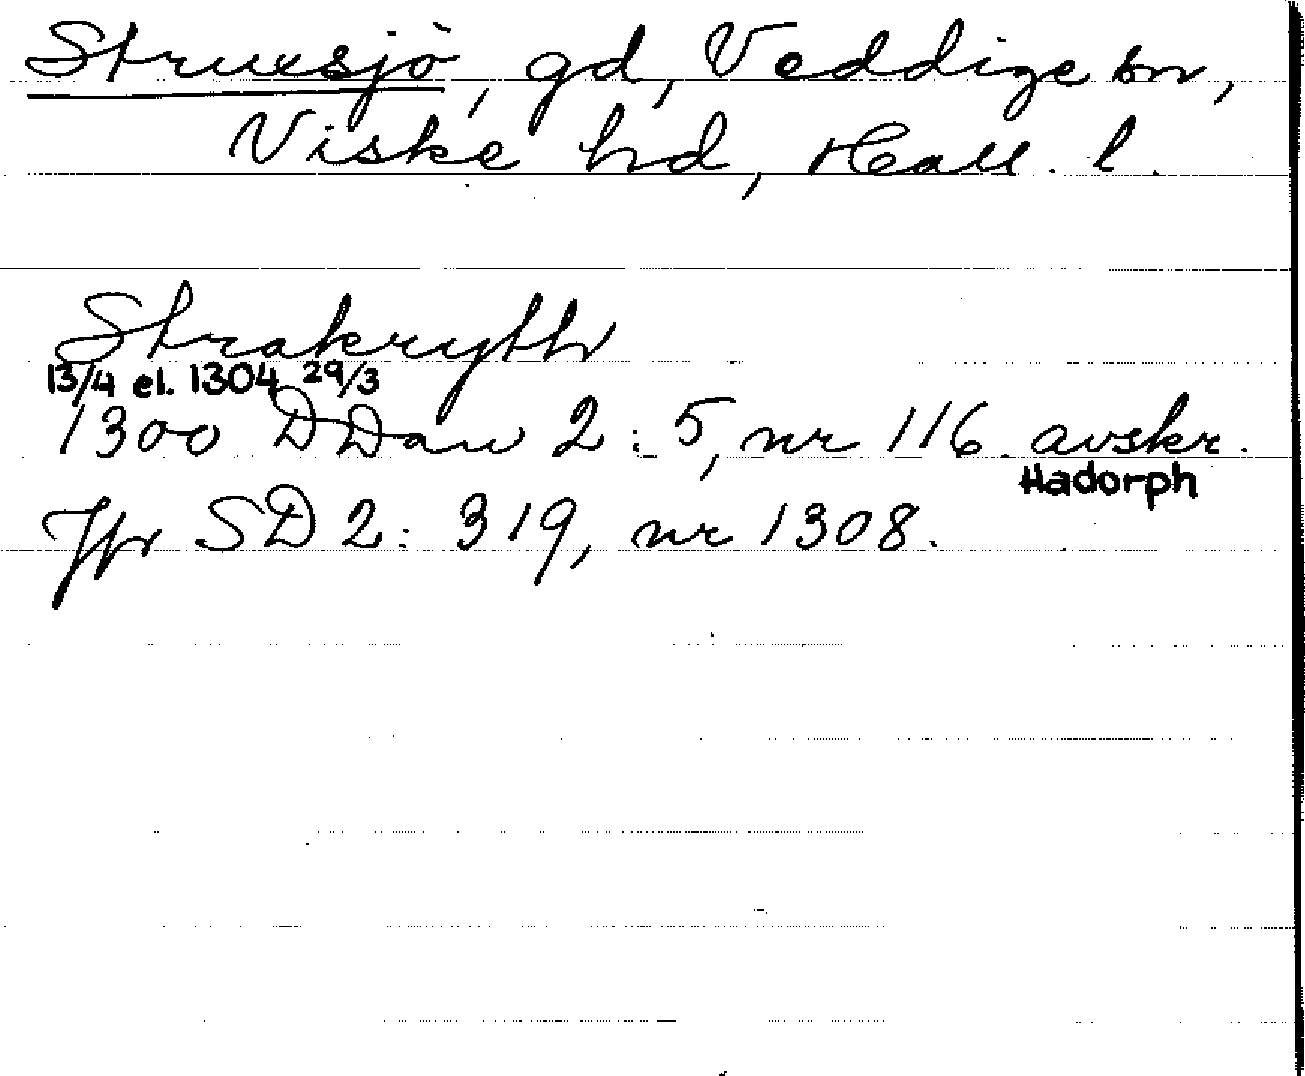 Struxsjö, gd, Veddige sn,
Viske hd, Hall. l.
Strakryth
13/4 el. 1304 29/3
1300 DDan 2:5, nr 116. avskr.
Hadorph
Jfr SD 2: 319, nr 1308.